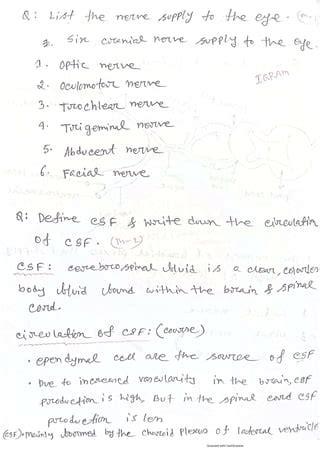 Q: List the nerve supply to the eye.
Six cranial nerve supply to the eye.
1. Optic nerve
2. Oculomotor nerve
IGRAM
3. Trochlear nerve
4. Trigeminal nerve
5. Abducent nerve
6. Facial nerve
Q: Define CSF & write down the circulation
of CSF. (M-2)
CSF: cerebrospinal fluid is a clear, colorless
body fluid found within the brain & spinal
cord.
circulation of CSF: (course)
• ependymal cell are the source of CSF
• Due to increased vascularity in the brain, CSF
production is high, But in the spinal cord CSF
production is less
(CSF) → mainly formed by the choroid plexus of lateral ventricle